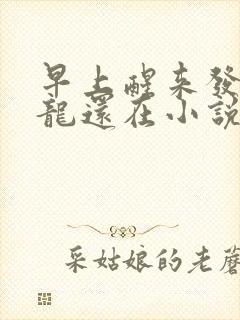 早上醒来發
龍還在小説
采姑娘的老蘑